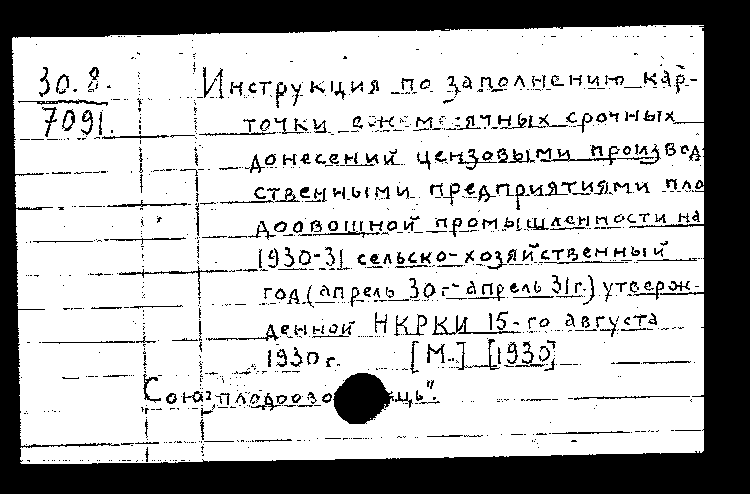 30.8. Инструкция по заполнению кар-
7091. точки ежемесячных срочных
донесений цензовыми производ
ственными предприятиями пло
доовощной промышленности на
1930-31 сельско-хозяйственный
год (апрель 30г.-апрель 31г.) утверж-
денной НКРКИ 15-го августа
1930г. [М..] [1930]